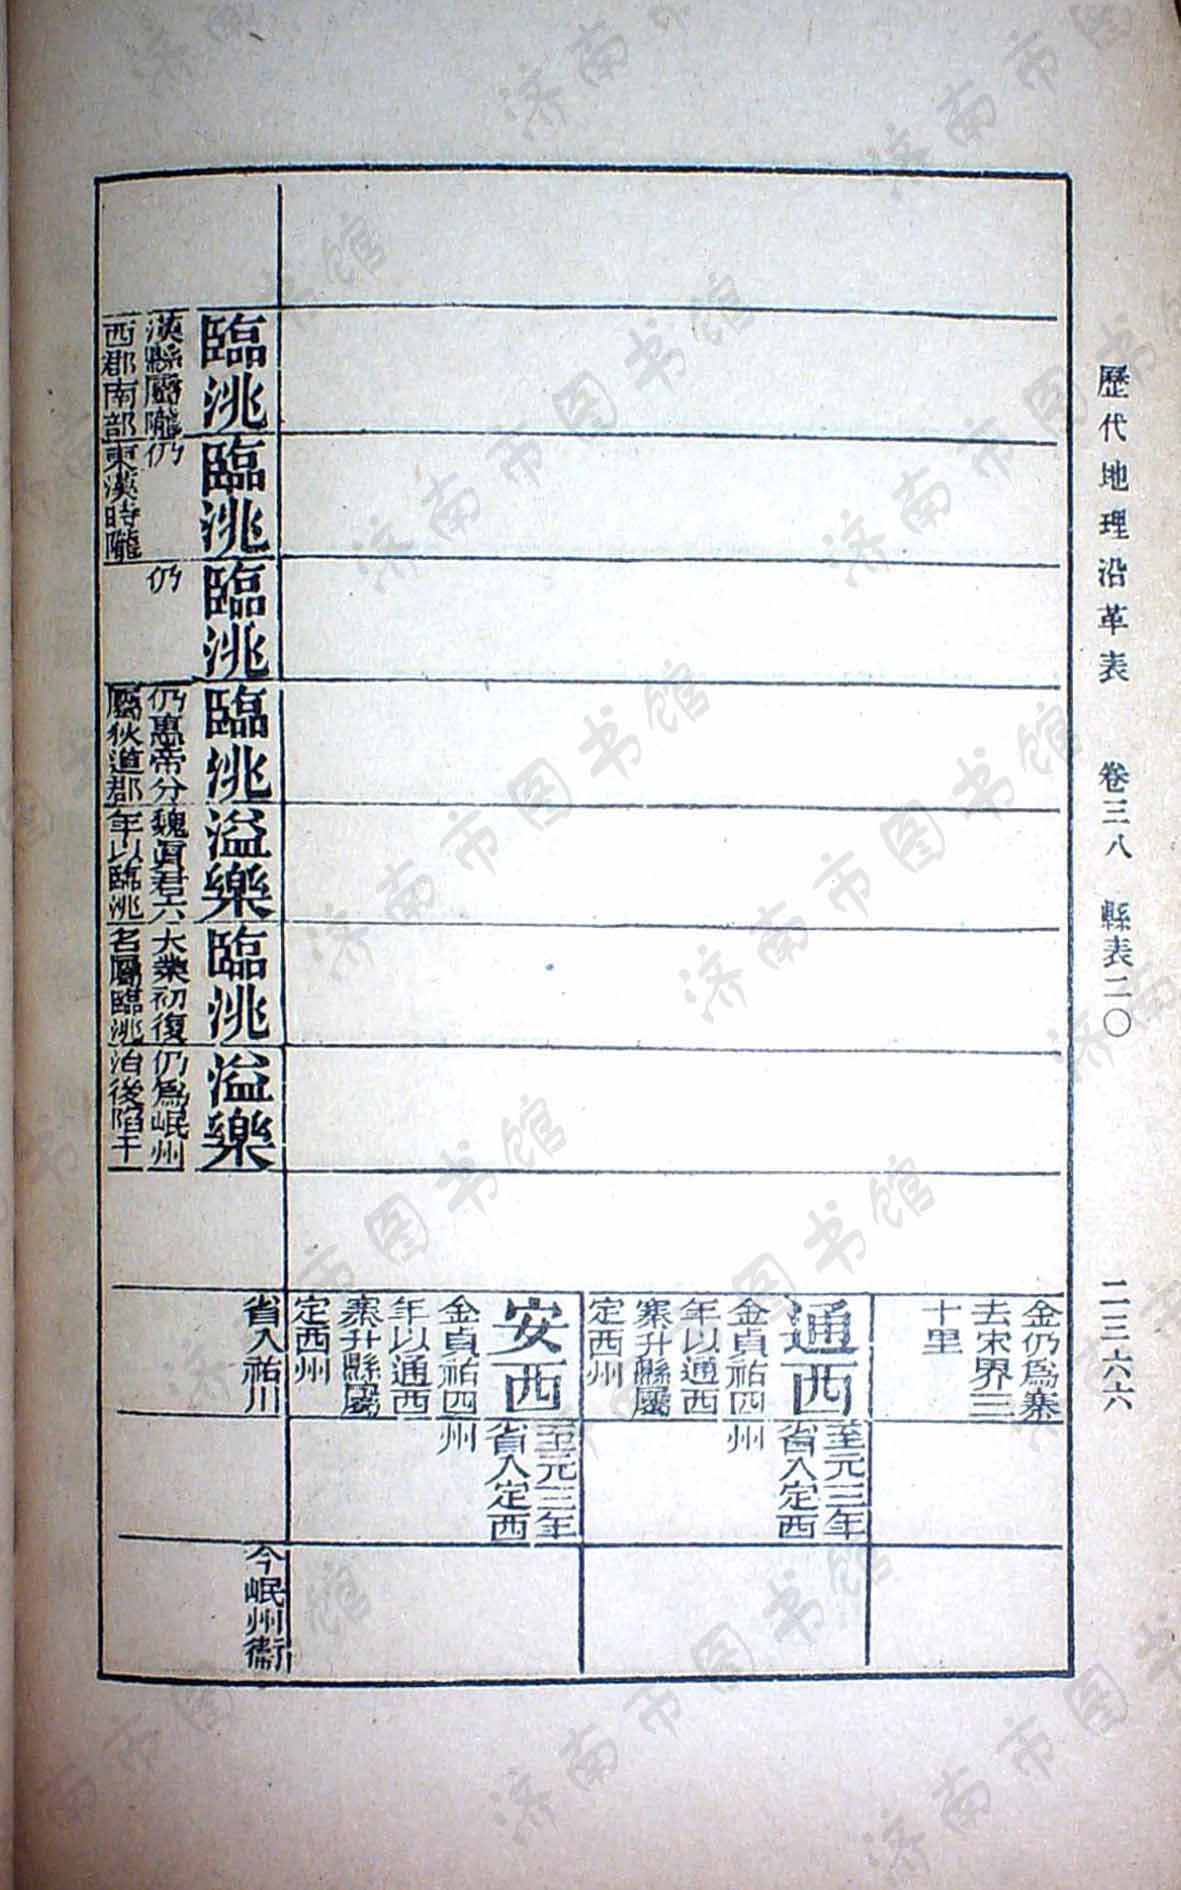 歷代地理沿革表 卷三八 縣表二〇 二三六六
金仍爲寨
去宋界三
十里
通西
金貞祐四
年以通西
寨升縣屬
定西州
至元三年
省入定西
州
安西
金貞祐四
年以通西
寨升縣屬
定西州
至元三年
省入定西
州
臨洮
漢縣屬隴
西郡南部
臨洮
仍
東漢時隴
臨洮
仍
臨洮
仍惠帝分
屬狄道郡
溢樂
魏眞君六
年以臨洮
臨洮
大業初復
名屬臨洮
溢樂
仍爲岷州
治後陷于
省入祐川
今岷州衞
济南市图书馆